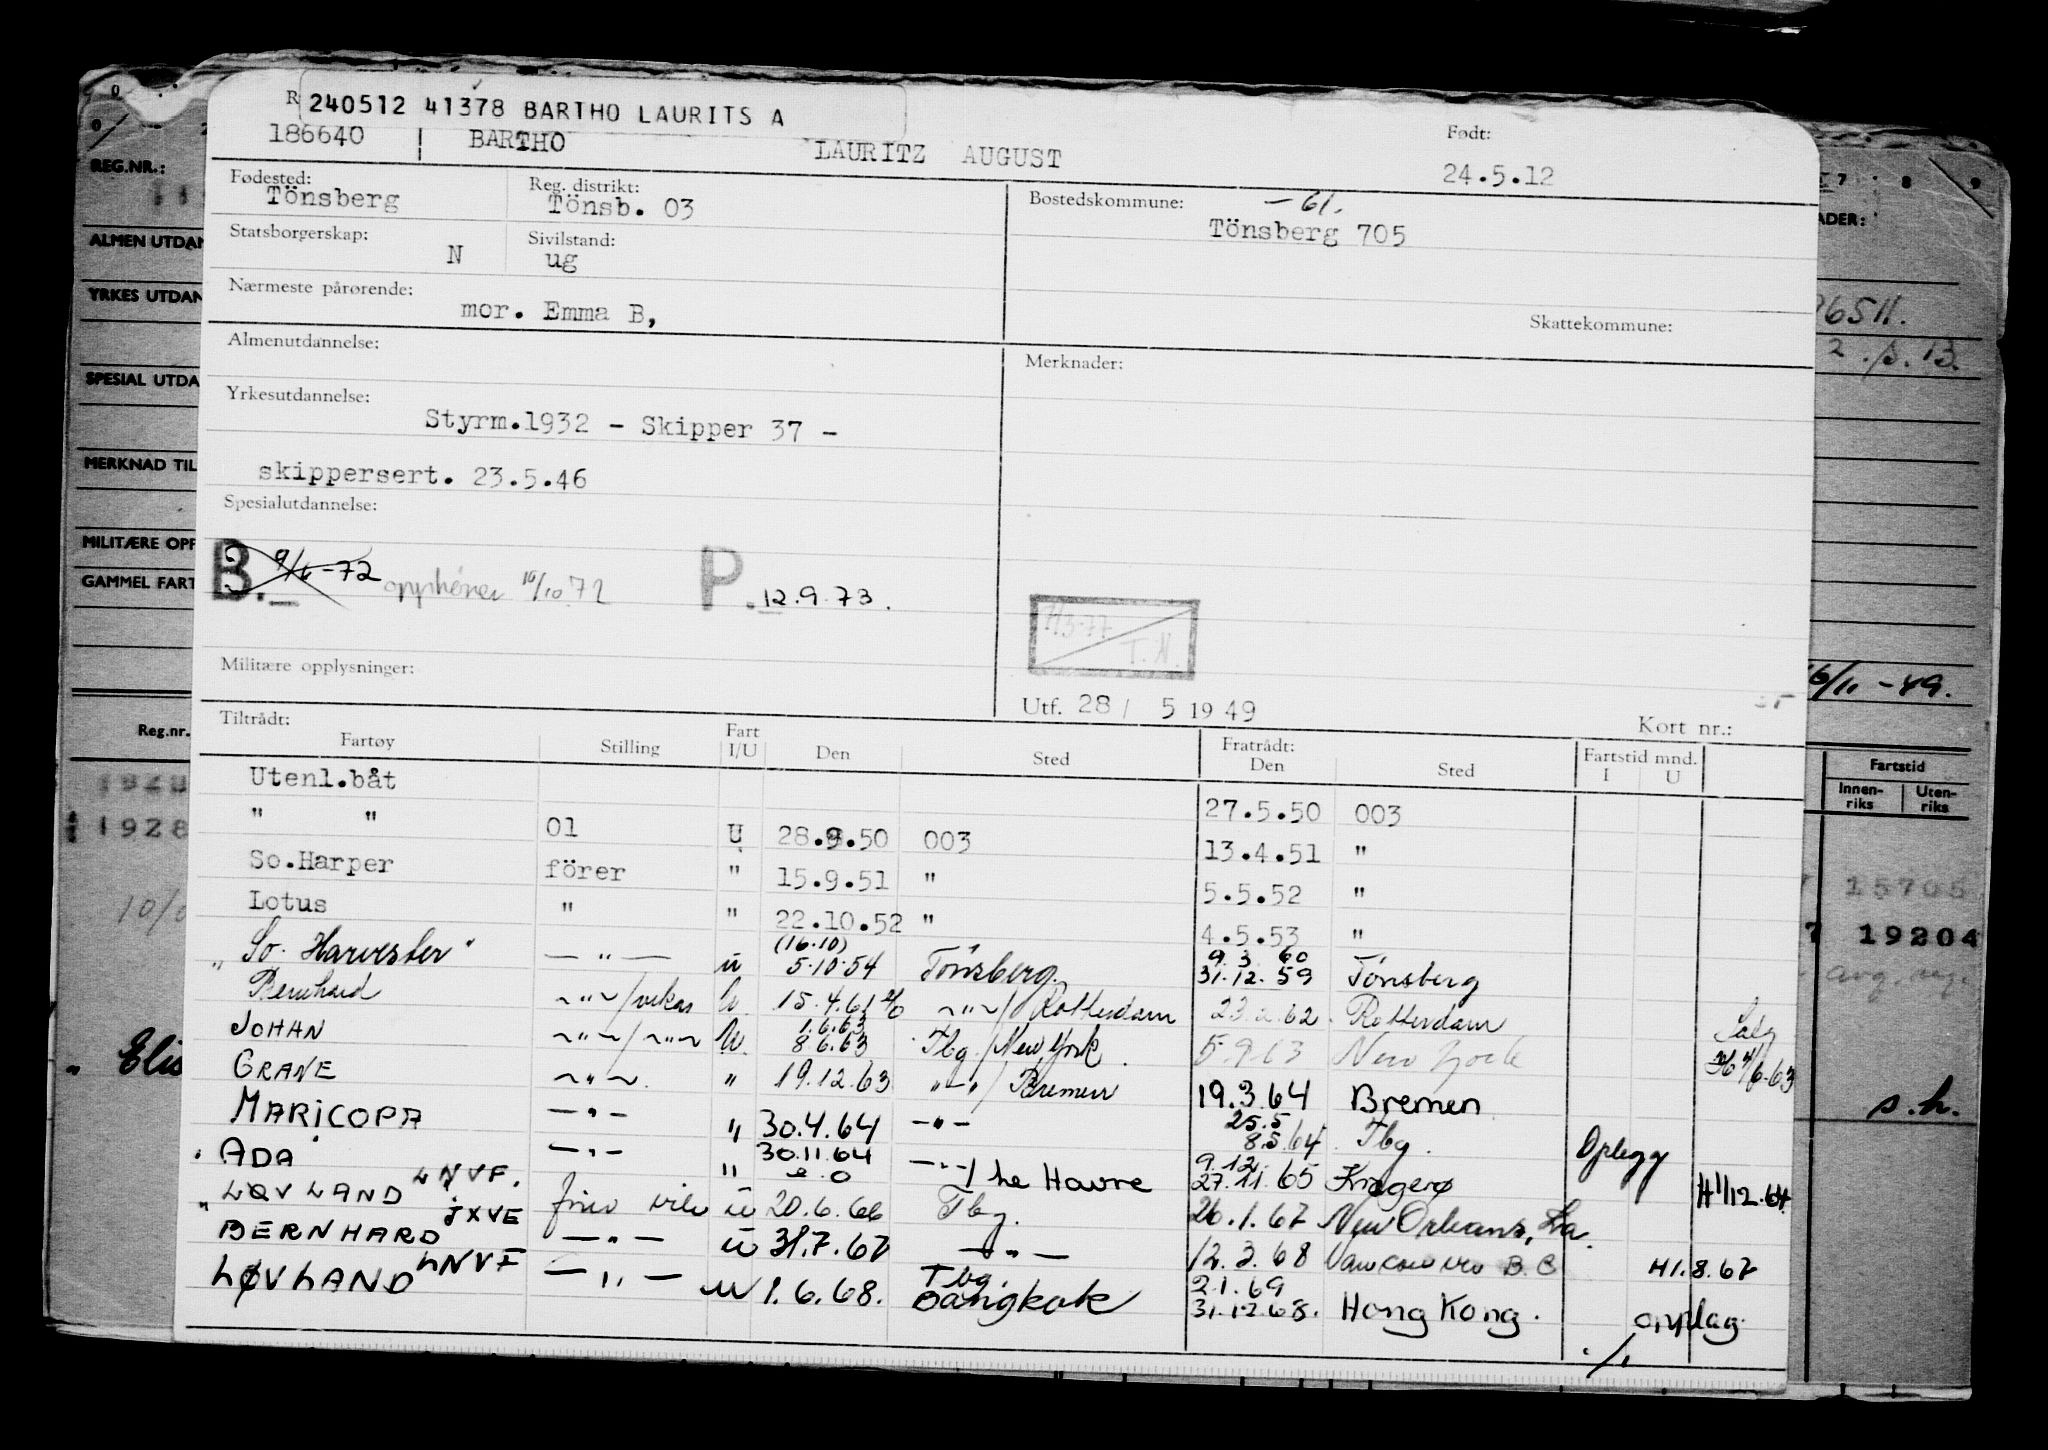 240512 41378 BARTHO LAURITS A
186640 BARTHO LAURITZ AUGUST
Født: 24.5.12
Fødested: Tönsberg
Reg. distrikt: Tönsb. 03
Bostedskommune: -61.
Tönsberg 705
Statsborgerskap: N
Sivilstand: ug
Nærmeste pårørende: mor. Emma B,
Skattekommune:
Almenutdannelse:
Merknader:
Yrkesutdannelse:
Styrm.1932 - Skipper 37 -
skippersert. 23.5.46
Spesialutdannelse:
B. 9/6-72 opphører 16/10 72 P. 12.9.73.
H3-77 T.N.
Militære opplysninger:
Utf. 28 / 5 19 49
Kort nr.:
Tiltrådt: Fratrådt:
Fartøy Stilling Fart I/U Den Sted Den Sted Fartstid mnd. I U
Utenl.båt 27.5.50 003
" " 01 U 28.9.50 003 13.4.51 "
So.Harper förer " 15.9.51 " 5.5.52 "
Lotus " " 22.10.52 " 4.5.53 "
(16.10) 9.3.60
"So. Harvester" — " — u 5.10.54 Tönsberg. 31.12.59 Tönsberg
Bernhard ~"~/vikar U 15.4.61 ~"~/Rotterdam 62 Rotterdam Salg
1.6.63
JOHAN ~"~/~"~ U. 8.6.63 Tbg./New York 5.9.63 New York 4/6-63
GRANE ~"~. " 19.12.63 "-"/Bremen 19.3.64 Bremen
25.5
MARICOPA -"- " 30.4.64 -"- 8.5.64 Tbg. Oplegg
30.11.64 9.12.
"ADA" -"- " -"-/ Le Havre 27.11.65 Kragerø H1/12.64
LØVLAND LNVF. fører u 20.6.66 Tbg. 26.1.67 New Orleans, La.
BERNHARD JXVE -"- u 31.7.67 -"- 12.3.68 Vancouver B.C H1.8.67
Tbg. 2.1.69
LØVLAND LNVF -"- u 1.6.68. Bangkok 31.12.68. Hong Kong. opplag
./.
REG.NR.:
ALMEN UTDAN
YRKES UTDAN
SPESIAL UTDA
MERKNAD TIL
MILITÆRE OPP
GAMMEL FART
Reg.nr.
1928
1928
10/
" Elis
7 8 9
ADER:
6511.
13.
6/11 -49.
Fartstid
Innen-riks Uten-riks
15705
19204
s.h.